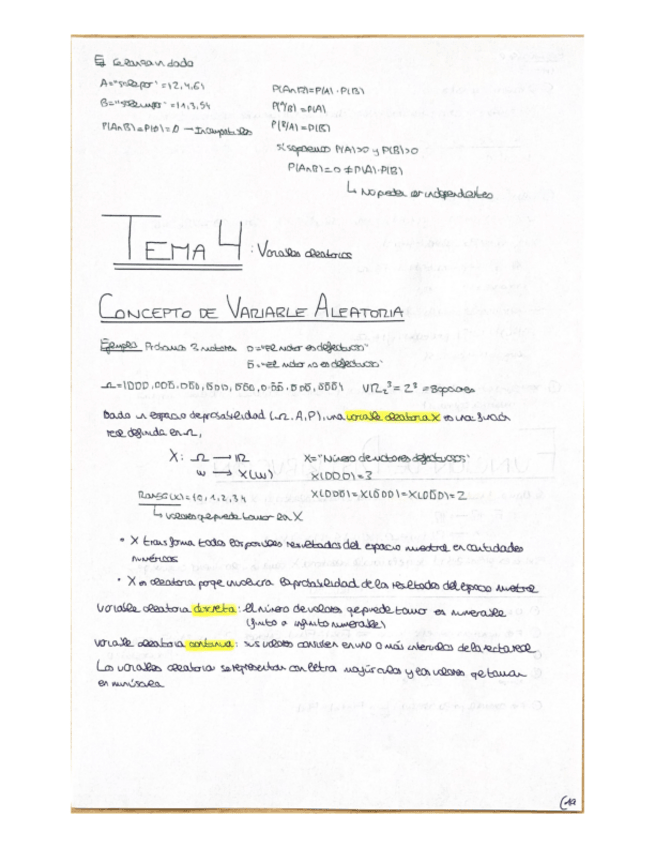 Ej Se lanza un dado
A="sale par" = {2,4,6}
B="sale impar" = {1,3,5}
P(A∩B)=P(∅)=0 → Incompatibles
P(A∩B)=P(A)·P(B)
P(A/B)=P(A)
P(B/A)=P(B)
Si suponemos P(A)>0 y P(B)>0
P(A∩B)=0≠P(A)·P(B)
↳ No pueden ser independientes
TEMA 4: Variables aleatorias
CONCEPTO DE VARIABLE ALEATORIA
Ejemplo 3 motores D="el motor es defectuoso"
D̄="el motor no es defectuoso"
= 2³ = 8 opciones
Dado un espacio de probabilidad (Ω, A, P), una variable aleatoria X es una función
real definida en Ω,
X: Ω → ℝ X="Número de motores defectuosos"
w → X(w) X(DDD)=3
Rango(X)={0,1,2,3} X(DDD̄)=X(D̄DD)=X(DD̄D)=2
↳ valores que puede tomar la X
• X transforma todos los posibles resultados del espacio muestral en cantidades
numéricas
• X es aleatoria porque involucra la probabilidad de los resultados del espacio muestral
Variable aleatoria discreta: el número de valores que puede tomar es numerable
(finito o infinito numerable)
Variable aleatoria continua: sus valores consisten en uno o más intervalos de la recta real
Las variables aleatorias se representan con letra mayúsculas y los valores que toman
en minúscula